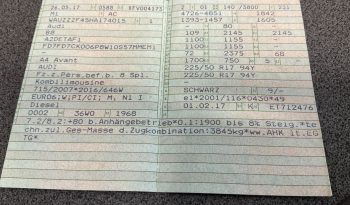 26.05.17 0588 BFV004173 2 01 140/3800 231
M1 AC 4726-4851 1842
WAUZZZF45HA174015 1 1393-1457 1605
Audi - 80 -
B8 109 2145 2145
A2DETAF1 1100 1155
FD7FD7CK006PBW10GS7MMEM1 1100 1155
- 72 2375 68
A4 Avant 1700 750 5
AUDI 225/50 R17 94Y
Fz.z.Pers.bef.b. 8 Spl. 225/50 R17 94Y
Kombilimousine
715/2007*2016/646W SCHWARZ 9/-
EURO6;WiPI/CI; M, N1 I e1*2001/116*0430*49
Diesel 01.02.17 K ET712476
0002 36W0 1968
7.2/8.2:+80 b.Anhängebetrieb*0.1:1900 bis 8% Steig.*te
chn.zul.Ges-Masse d.Zugkombination:3845kg*ww.AHK lt.EG
TG*